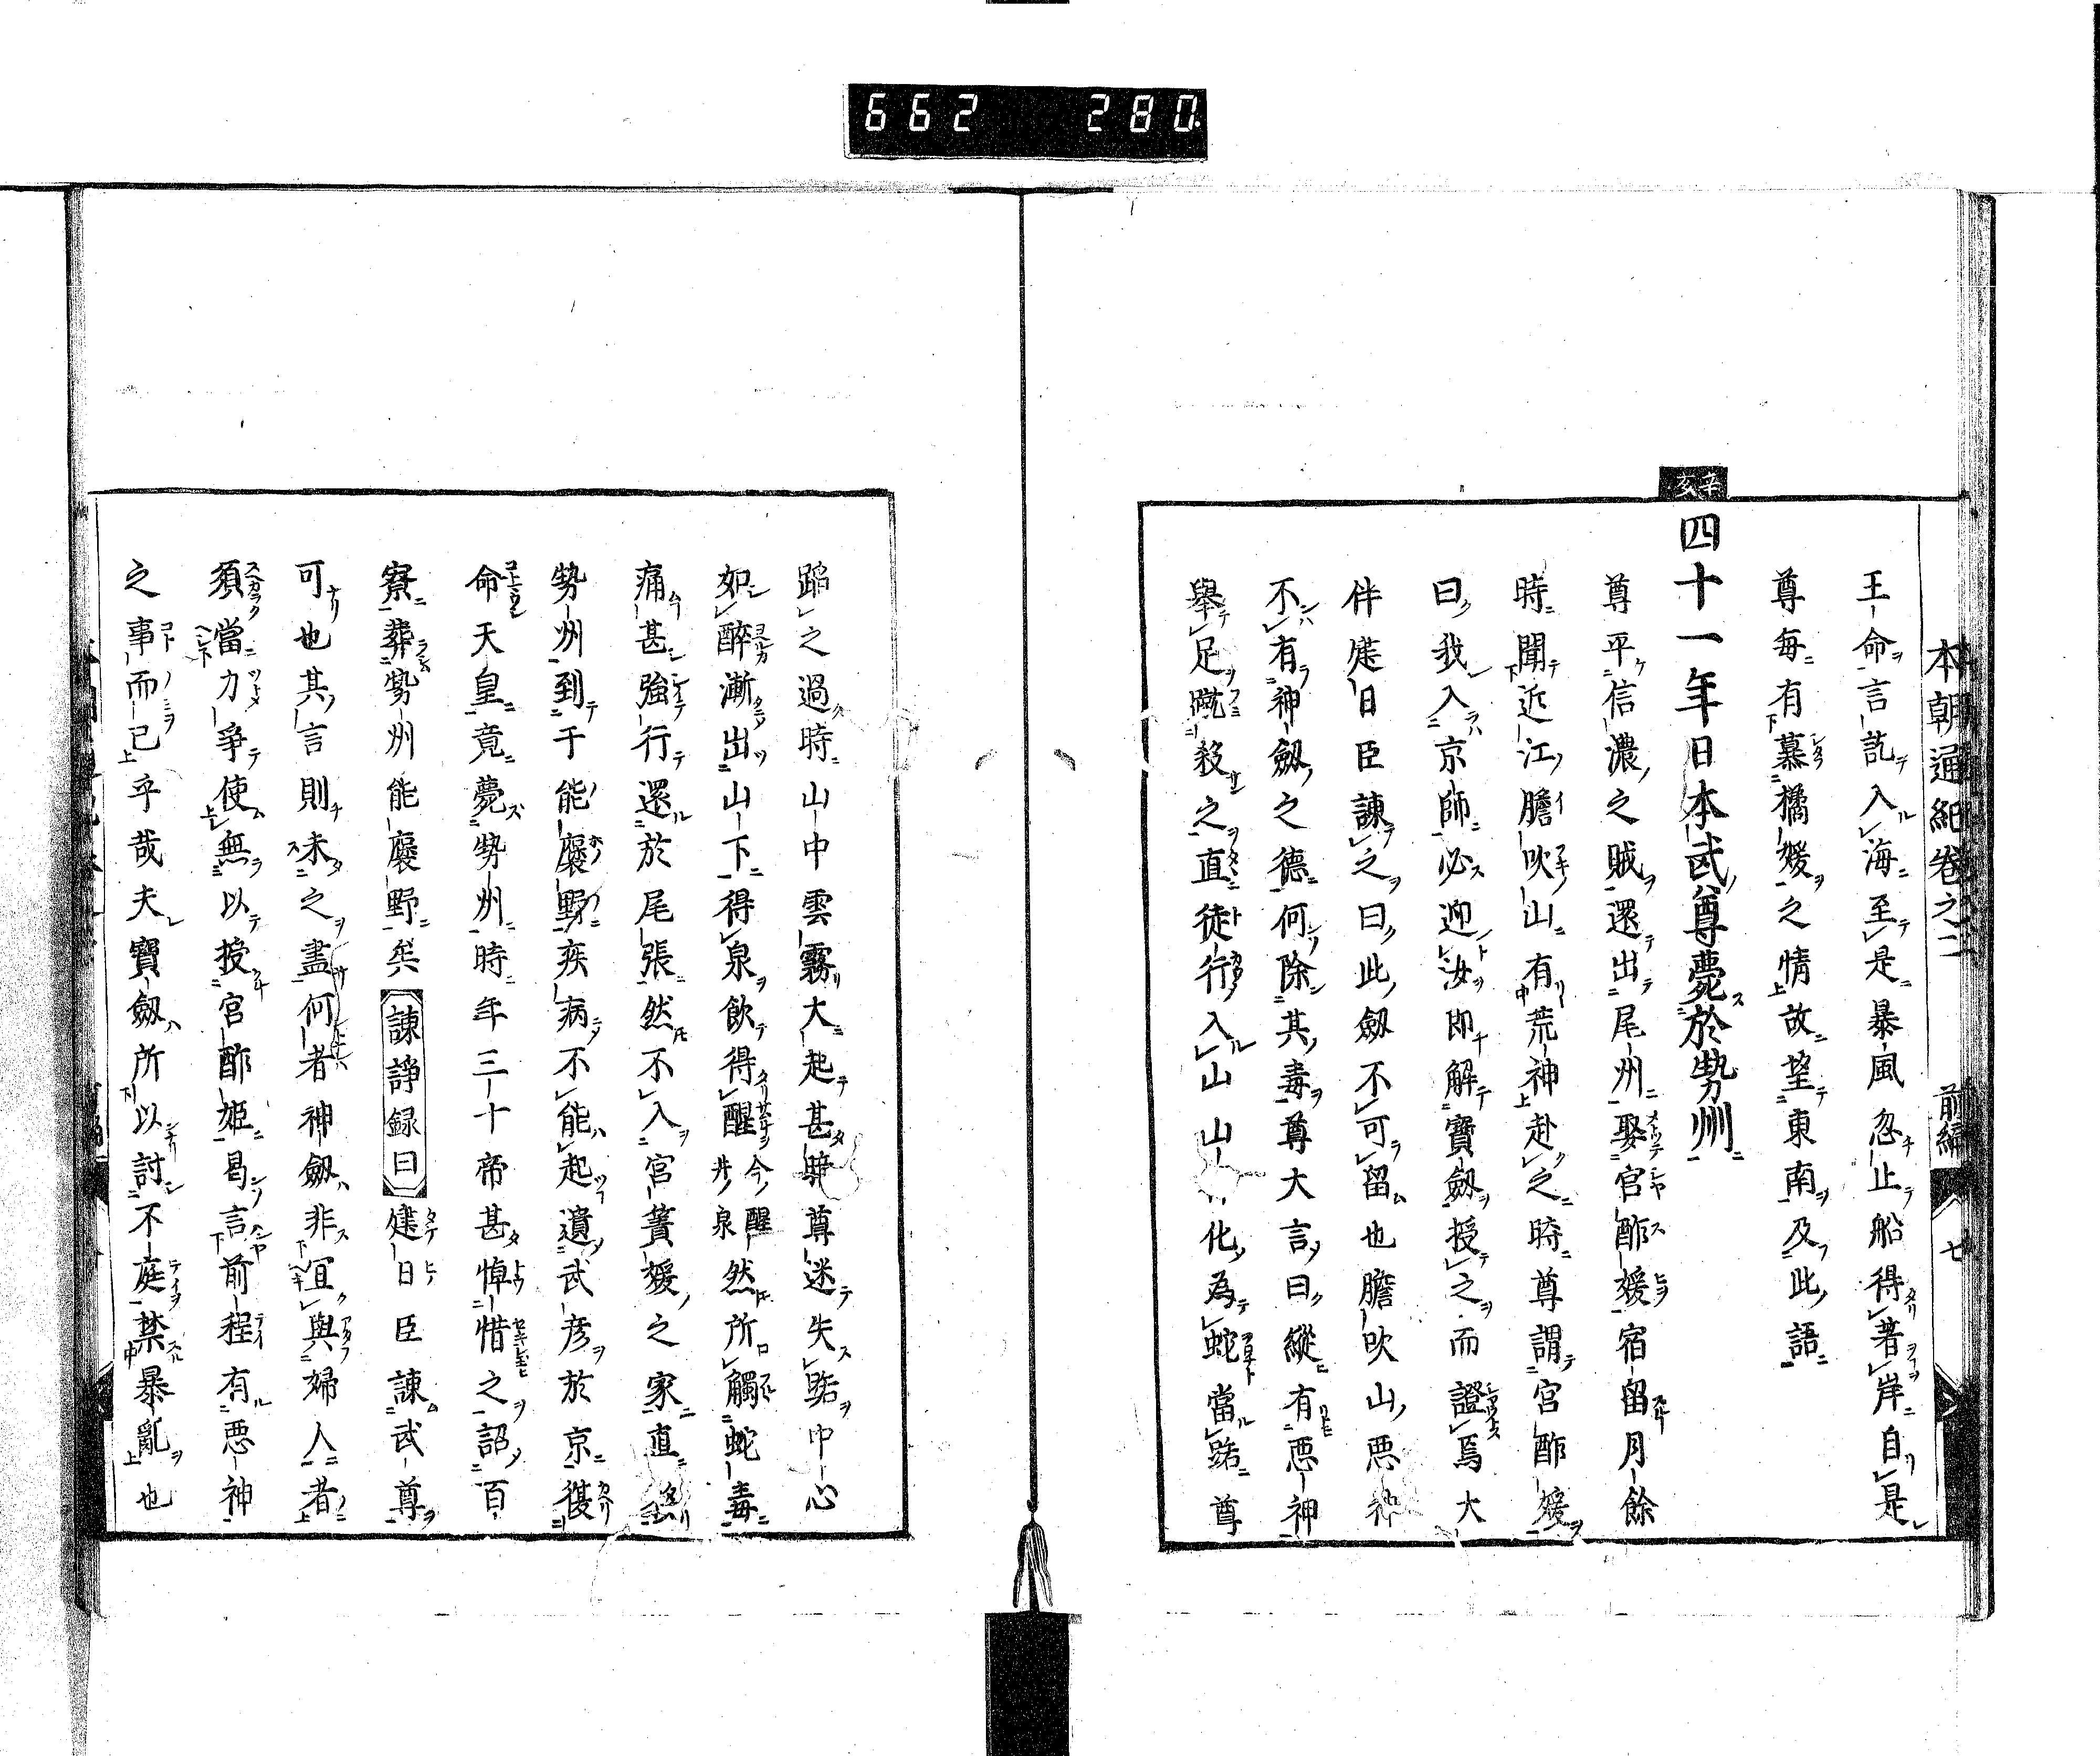 662 280
本朝通紀卷之二 前編 七
王命言訖入海至是暴風忽止船得著岸自是
尊每有慕橘媛之情故望東南及此語
辛亥
四十一年日本武尊薨於勢州
尊平信濃之賊還出尾州娶宮酢媛宿留月餘
時聞近江膽吹山有荒神赴之時尊謂宮酢媛
曰我入京師必迎汝即解寶劔授之而證焉大
伴建日臣諫之曰此劔不可留也膽吹山惡神
不有神劔之德何除其毒尊大言曰縱有惡神
舉足蹴殺之直徒行入山山 化為蛇當路尊
蹈之過時山中雲霧大起甚 尊迷失路中心
如醉漸出山下得泉飲得醒今醒井泉然所觸蛇毒
痛甚強行還於尾張然不入宮簀媛之家直
勢州到于能褒野疾病不能起遣武彥於京復
命天皇竟薨勢州時年三十帝甚悼惜之詔百
寮葬勢州能褒野矣諫諍録曰建日臣諫武尊
可也其言則未之盡何者神劔非宜與婦人者
須當力爭使無以授宮酢姫曷言前程有惡神
之事而已乎哉夫寶劔所以討不庭禁暴亂也